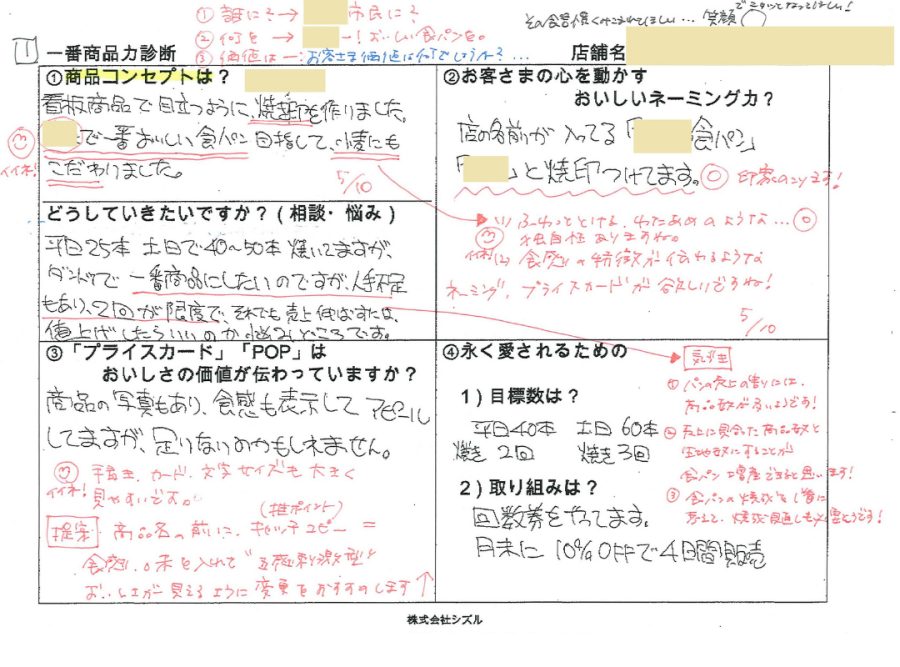 ① 誰に?→ 市民に?
② 何を → 一!おいしい食パンを。
③ 価値は一:お客さま価値は何でしょうか?…
笑顔
1 一番商品力診断 店舗名
①商品コンセプトは?
看板商品で目立つように、焼印を作りました。
で一番おいしい食パン目指して、
こだわりました。
イイネ!
5/10
どうしていきたいですか?(相談・悩み)
平日25本 土日で40〜50本 焼いてますが、
ダントツで一番商品にしたいのですが、人手不足
もあり、2回が限度で、それでも売上伸ばすには、
値上げしたらいいのか悩みどころです。
②お客さまの心を動かす
おいしいネーミング力?
店の名前が入ってる「 食パン」
「 」と焼印つけてます。 印象のこります!
(1) ふわっととける、わたあめのような…
独自性ありますね。
イイネ!
(2) 食感の特徴が伝わるような
ネーミング、プライスカードが欲しいですね!
5/10
③「プライスカード」「POP」は
おいしさの価値が伝わっていますか?
商品の写真もあり、食感も表示してアピール
してますが、足りないのかもしれません。
イイネ! 手書き、カード、文字サイズも大きく
見やすいですね。
(推ポイント)
提案 商品名の前に、キャッチコピー =
食感、味を入れて"五感刺激型"
おいしさが見えるように変更をおすすめします
④永く愛されるための
1)目標数は?
平日40本 土日60本
焼き2回 焼き3回
2)取り組みは?
回数券をやってます。
月末に10%OFFで4日間販売
気づき
① パンの売上の割りには、
商品数が多いようです!
② 売上に見合った商品数と
生地数にすることが
食パン増産できると思います!
③ 食パンの焼成を
株式会社シズル